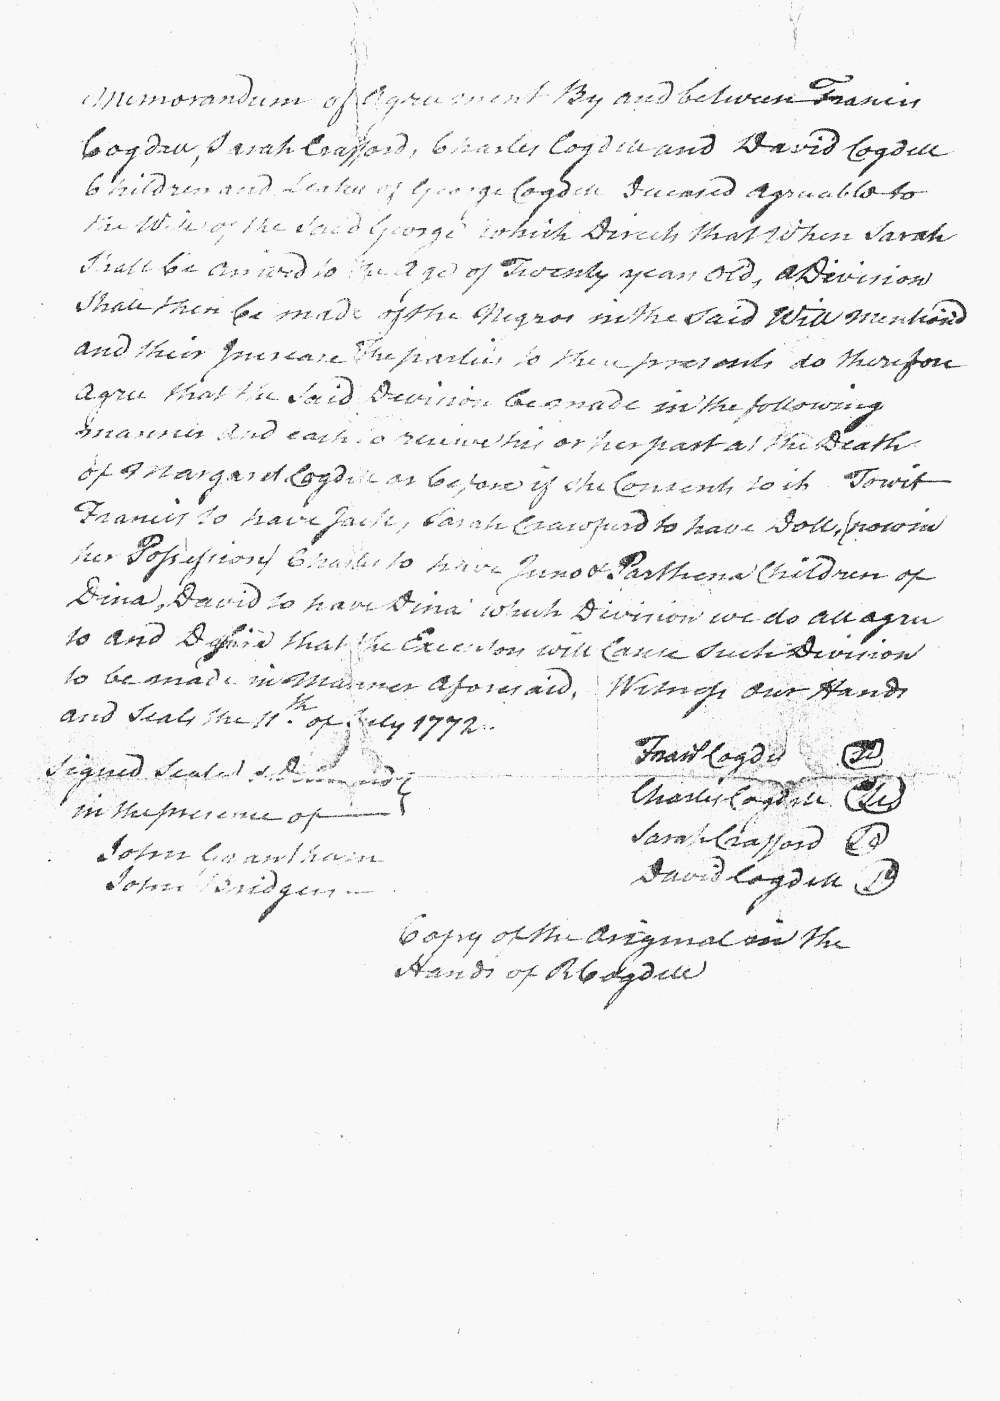 Memorandum of Agreement By and between Francis
Cogdell, Sarah Crafford, Charles Cogdell and David Cogdell
Children and of George Cogdell Deceased Agreeable to
the Will of the Said George which Directs that When Sarah
Shall be arrived to the Age of Twenty years Old, a Division
Shall then be made of the Negros in the Said Will mentiond
and their Increase The parties to these presents do therefore
Agree that the Said Division be made in the following
manner and each to receive his or her part at the Death
of Margaret Cogdell or before if she Consents to it Towit
Francis to have Jack, Sarah Crawford to have Doll, (now in
her Possession) Charles to have Juno & Parthena Children of
Dina, David to have Dina which Division we do all agree
to and Desire that the Executors will Cause Such Division
to be made in Manner aforesaid. Witness our Hands
and Seals the 11th. of July 1772.
Signed Sealed &
in the presence of
John Grantham
John Bridgers
Frans Cogdell
Charles Cogdell
Sarah Crafford
David Cogdell
Copy of the Original in the
Hands of R Cogdell